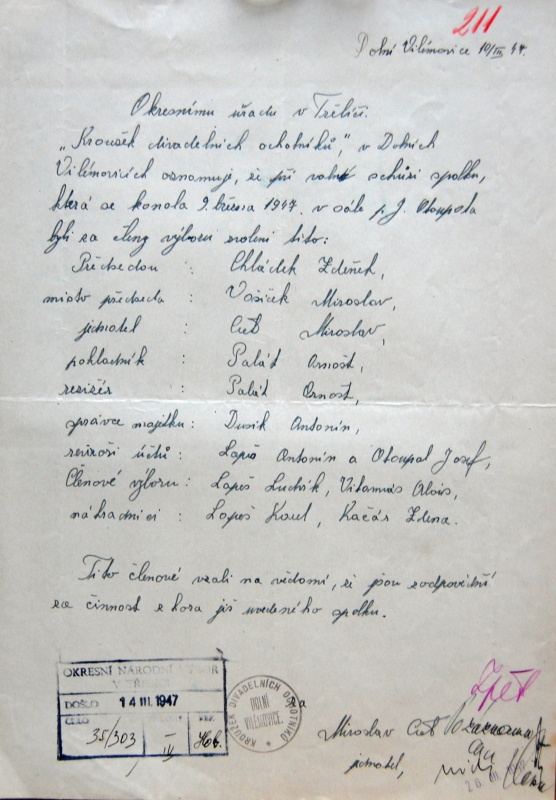 211
Dolní Vilémovice 10/III 47.
Okresnímu úřadu v Třebíči.
„Kroužek divadelních ochotníků," v Dolních
Vilémovicích oznamuje, že při valné schůzi spolku,
která se konala 9. března 1947 v sále p. J. Otoupala
byli za členy výboru zvoleni tito:
Předsedou : Chládek Zdeněk,
místo předseda : Vašíček Miroslav,
jednatel : Miroslav,
pokladník : Palát Arnošt,
režisér : Palát Arnošt,
správce majetku : Dusík Antonín,
revizoři účtů : Lapeš Antonín a Otoupal Josef,
Členové výboru : Lapeš Ludvík, Vitamvás Alois,
náhradníci : Lapeš Karel, Kačár Zdena.
Tito členové vzali na vědomí, že jsou zodpovědní
za činnost z hora již uvedeného spolku.
OKRESNÍ NÁRODNÍ VÝBOR
V TŘEBÍČI
DOŠLO 14 III. 1947
ČÍSLO
35/303 IV
KROUŽEK DIVADELNÍCH OCHOTNÍKŮ
DOLNÍ
VILÉMOVICE
za
Zpět
Miroslav
jednatel,
20. III.